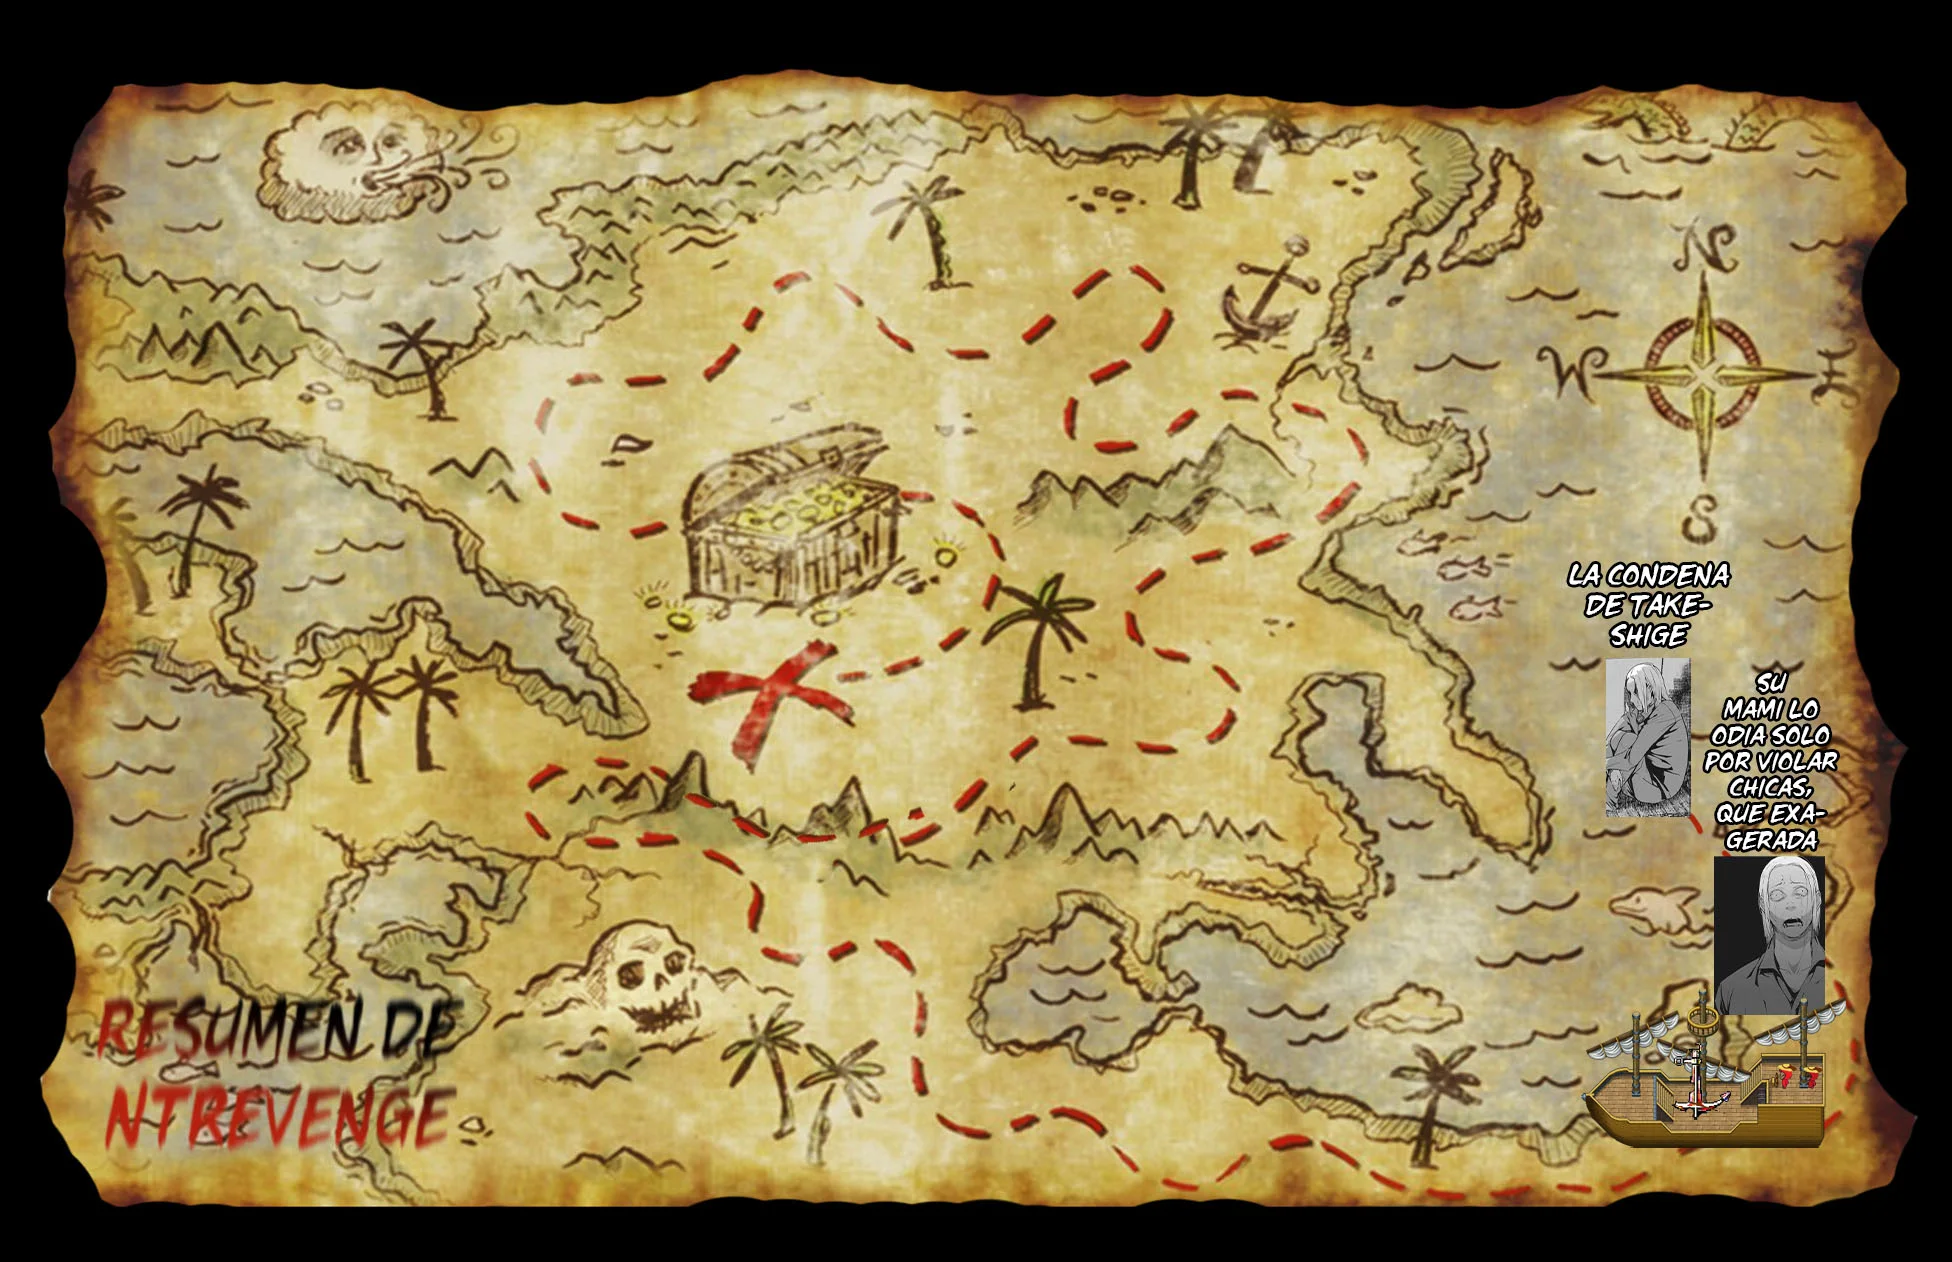 N
W
E
S
LA CONDENA
DE TAKE-
SHIGE
SU
MAMI LO
ODIA SOLO
POR VIOLAR
CHICAS,
QUE EXA-
GERADA
RESUMEN DE
NTREVENGE